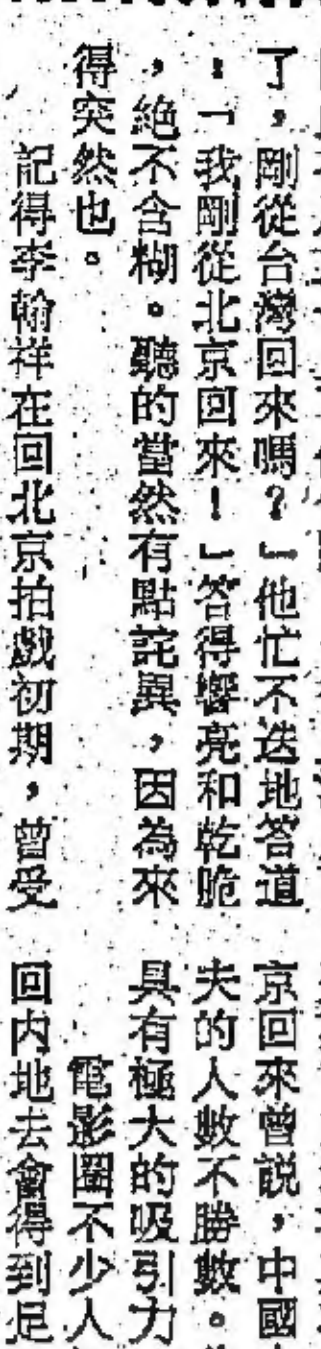 了，剛從台灣回來嗎？」他忙不迭地答道
：「我剛從北京回來！」答得響亮和乾脆
，絕不含糊。聽的當然有點詫異，因為來
得突然也。
記得李翰祥在回北京拍戲初期，曾受
京回來曾説，中國
夫的人數不勝數。
具有極大的吸引力
電影圈不少人
回内地去會得到足